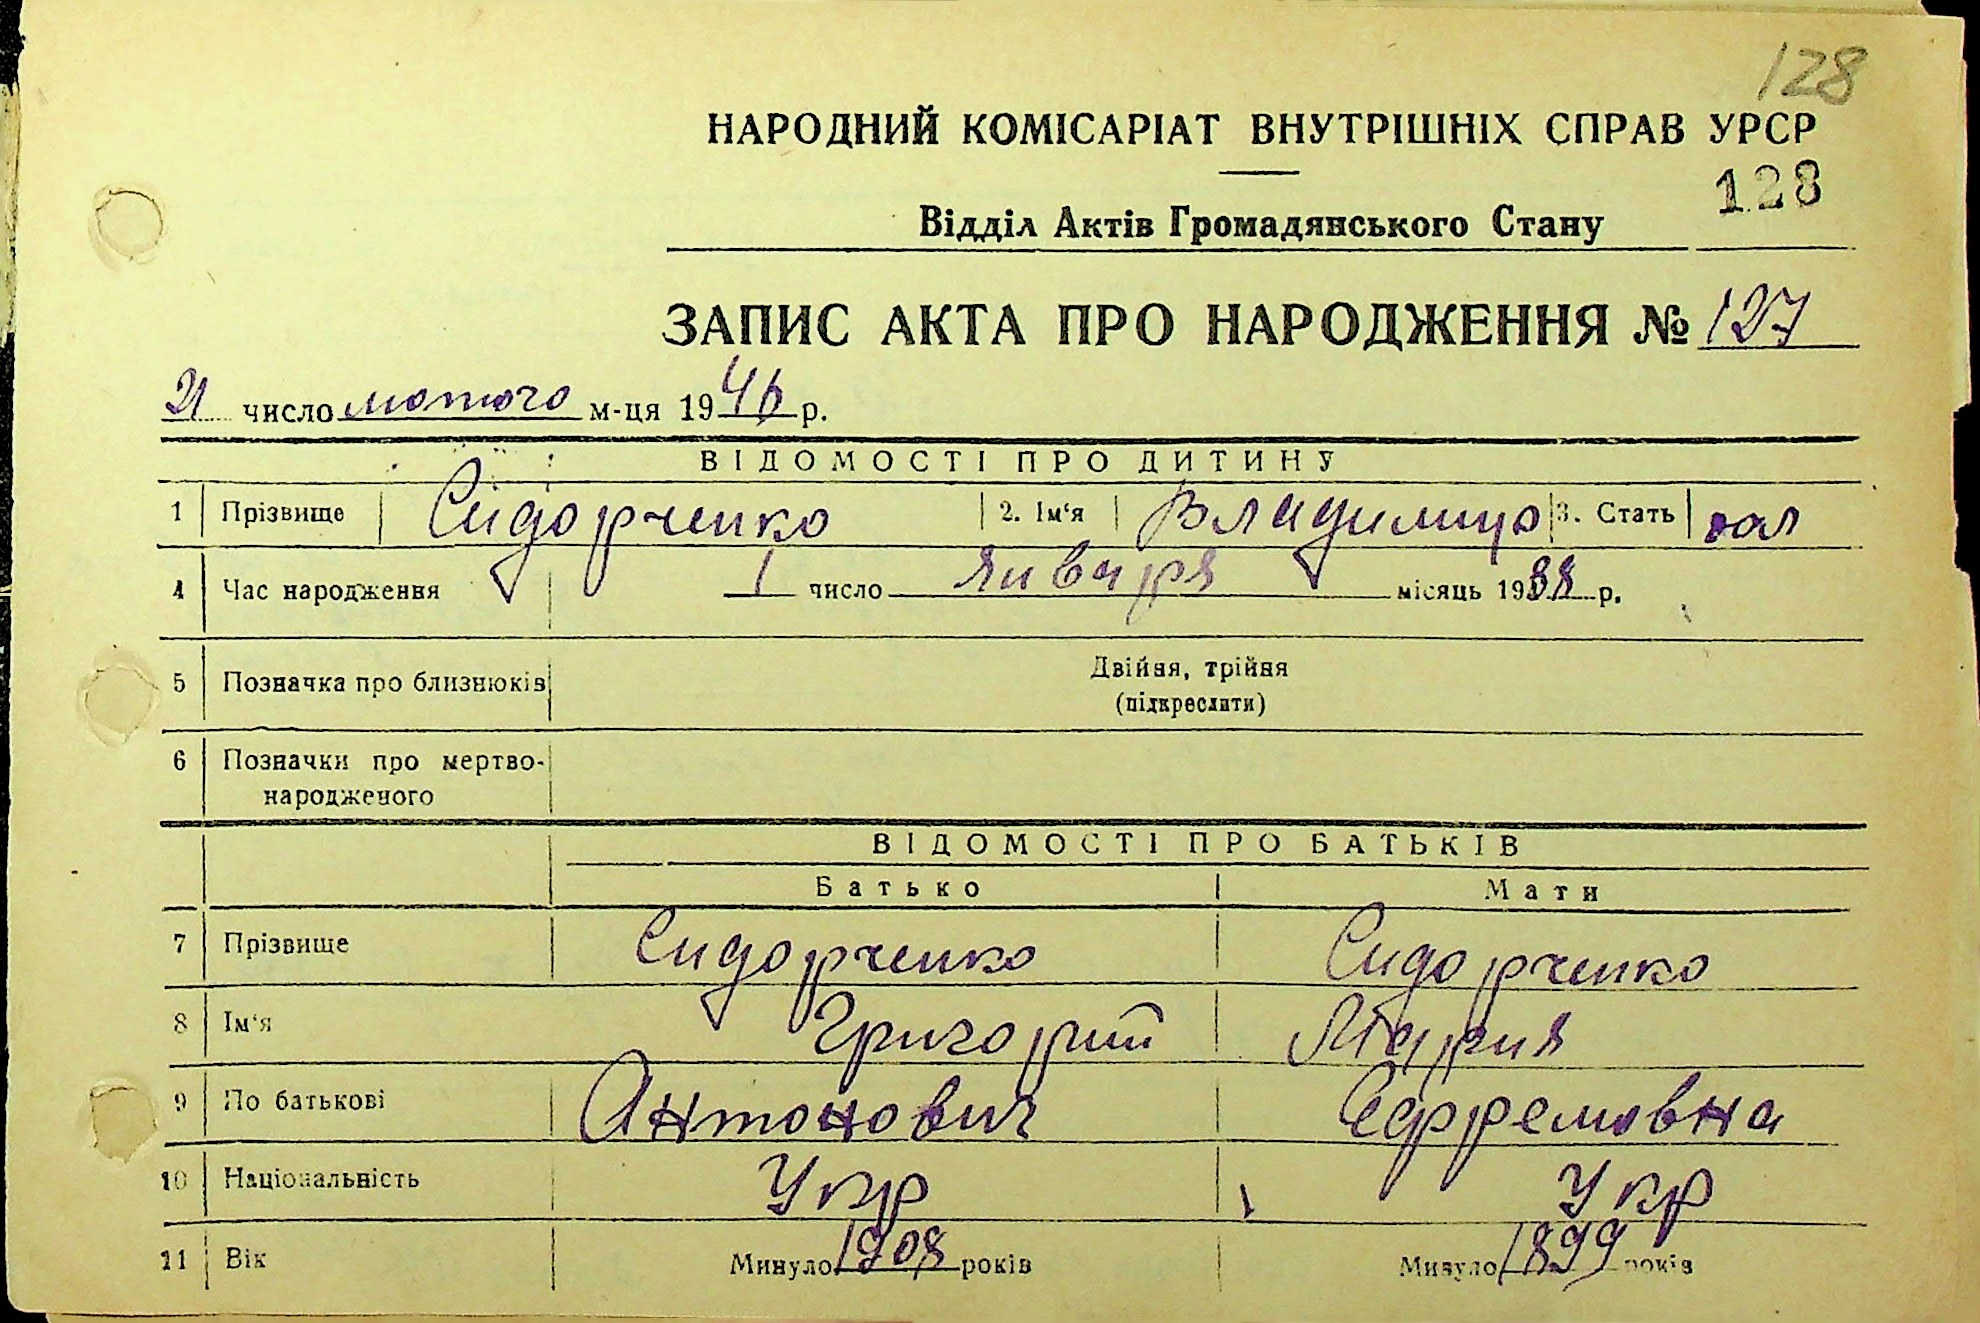 128
НАРОДНИЙ КОМІСАРІАТ ВНУТРІШНІХ СПРАВ УРСР
128
Відділ Актів Громадянського Стану
ЗАПИС АКТА ПРО НАРОДЖЕННЯ № 127
21 число лютого м-ця 1946 р.
ВІДОМОСТІ ПРО ДИТИНУ
1 Прізвище Сидорченко 2. Ім'я Владимир 3. Стать
4 Час народження 1 число января місяць 1938 р.
5 Позначка про близнюків Двійня, трійня
(підкреслити)
6 Позначки про мертво-
народженого
ВІДОМОСТІ ПРО БАТЬКІВ
Батько Мати
7 Прізвище Сидорченко Сидорченко
8 Ім'я Григорий Мария
9 По батькові Антонович Ефремовна
10 Національність Укр Укр
11 Вік Минуло 1908 років Минуло 1899 років